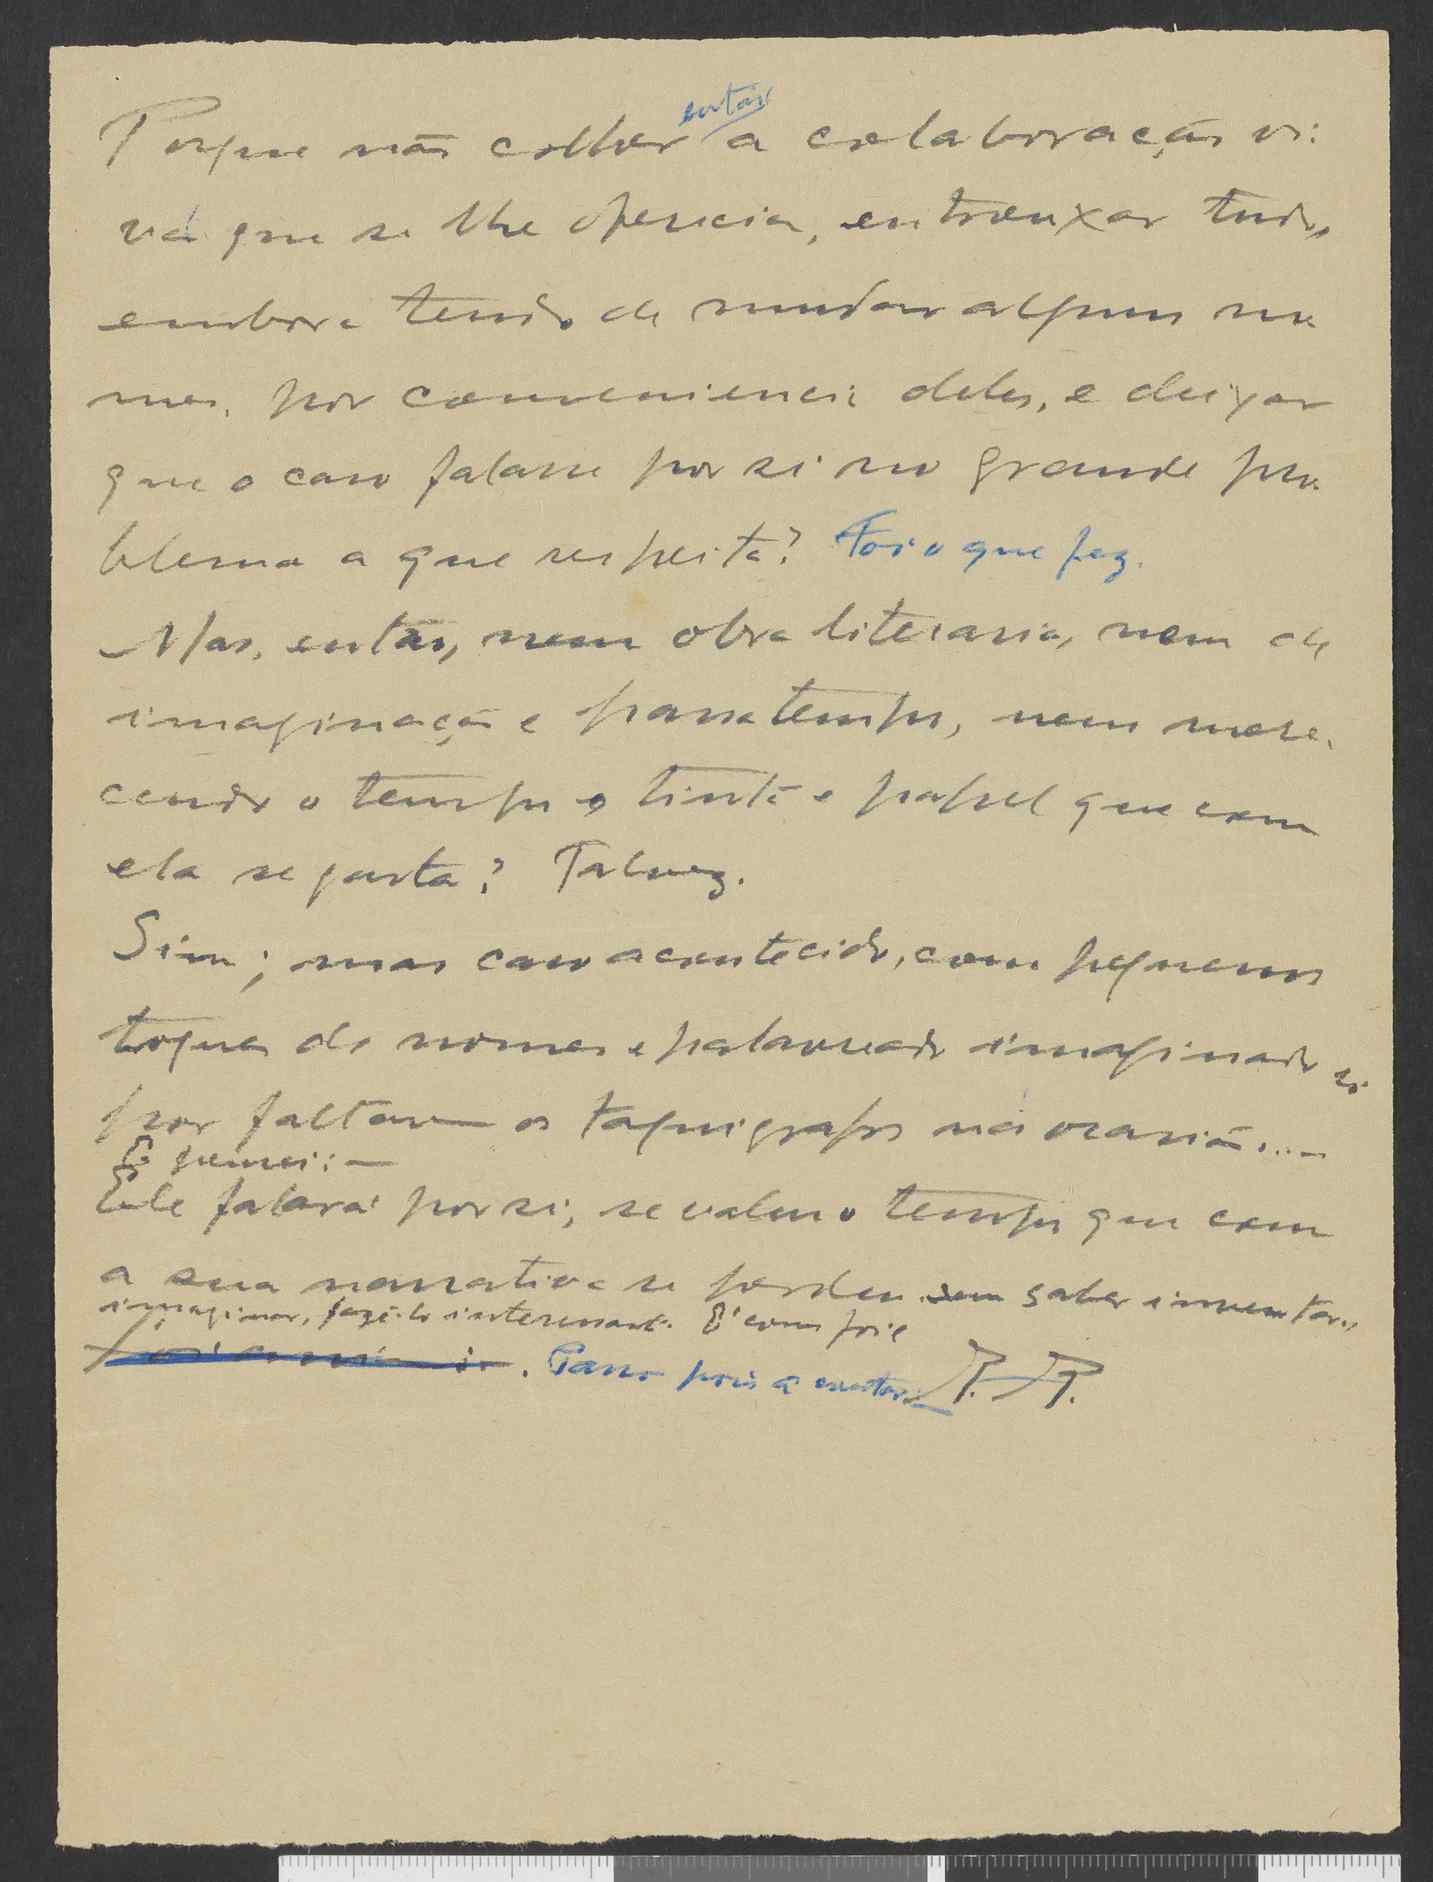 Porque não colher então a colaboração vi-
va que se lhe oferecia, entrouxar tudo,
embora tendo de mudar alguns no-
mes, por conveniencia deles, e deixar
que o caso falasse por si no grande pro-
blema a que respeita? Foi o que fez.
Mas, então, nem obra literaria, nem de
imaginação e passatempo, nem mere-
cendo o tempo e tinta e papel que com
ela se gasta? Talvez.
Sim; mas caso acontecido, com pequenos
toques de nomes e palavreado imaginado só
por faltarem os taquigrafos na ocasião....
E pensei: —
Ele falará por si, se valeu o tempo que com
a sua narrativa se perdeu sem saber inventar,
imaginar, fazê-lo interessante. E' como foi e
. Passo pois a contar: P. P.